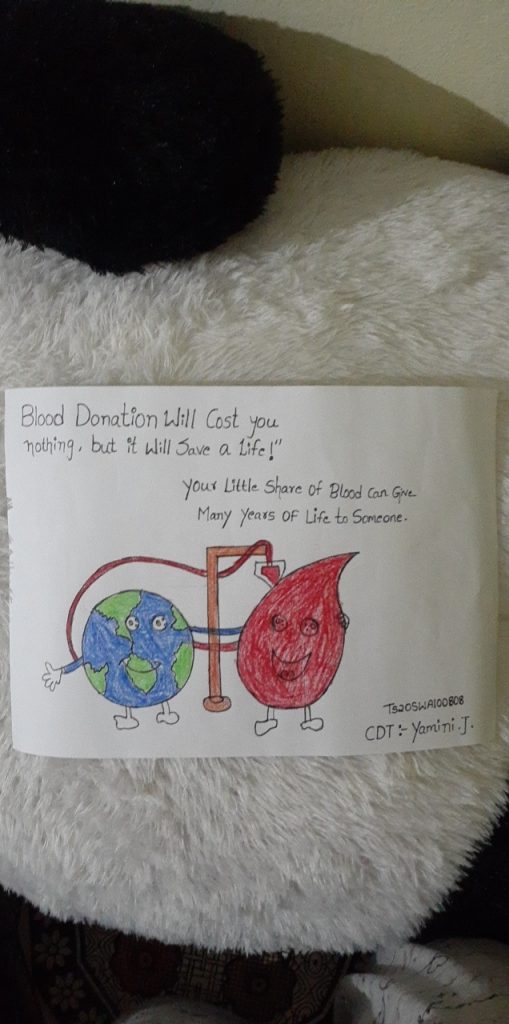 Blood Donation Will Cost you
nothing, but it Will Save a Life!"
Your Little Share of Blood Can Give
Many Years of Life to Someone.
TS20SWA100808
CDT :- Yamini.J.